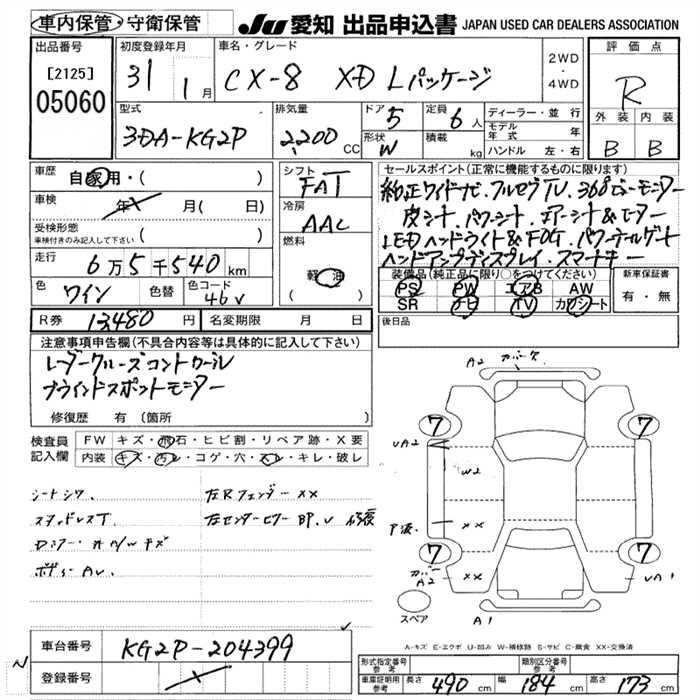 車内保管・守衛保管
JU 愛知 出品申込書 JAPAN USED CAR DEALERS ASSOCIATION
出品番号
[2125]
05060
初度登録年月
31 1月
車名・グレード
CX-8 XD Lパッケージ
2WD
・
4WD
評価点
R
外装 内装
B B
型式
3DA-KG2P
排気量
2,200 CC
ドア 5
形状 W
定員 6人
積載 kg
ディーラー・並行
モデル年式 年
ハンドル 左・右
車歴 自家用・( )
車検 年 月(日)
受検形態
車検付きのみ記入して下さい ( )
走行 6万5千540km
色 ワイン 色替 色コード 46V
シフト
FAT
冷房
AAC
燃料
軽油
( )
セールスポイント(正常に機能するものに限ります)
純正ワイドナビ.フルセグTV.360ビューモニター
皮シート.パワーシート.エアーシート&ヒーター
LEDヘッドライト&FOG.パワーテールゲート
ヘッドアップディスプレイ.スマートキー
装備品(純正品に限り○をつけてください)
PS PW エアB AW
SR ナビ TV カワシート
新車保証書
有・無
R券 13,480円 名変期限 月 日
後日品
注意事項申告欄(不具合内容等は具体的に記入して下さい)
レーダークルーズコントロール
ブラインドスポットモニター
修復歴 有(箇所 )
検査員記入欄
FW キズ・飛石・ヒビ割・リペア跡・X要
内装 キズ・汚レ・コゲ・穴・スレ・キレ・破レ
シートシワ. 左Rフェンダー XX
スタッドレスT. 左センターピラー BP.V 修復
ボディーAU.
A2 カバーX
7 7
UA2
W2
XX
7 7
カバー
A2 XX
UA1
A1
スペア
A-キズ E-エクボ U-凹み W-補修跡 S-サビ C-腐食 XX-交換済
車台番号 KG2P-204399
登録番号
形式指定番号 参考
類別区分番号 参考
車庫証明用 参考 長さ 490cm 幅 184cm 高さ 173cm